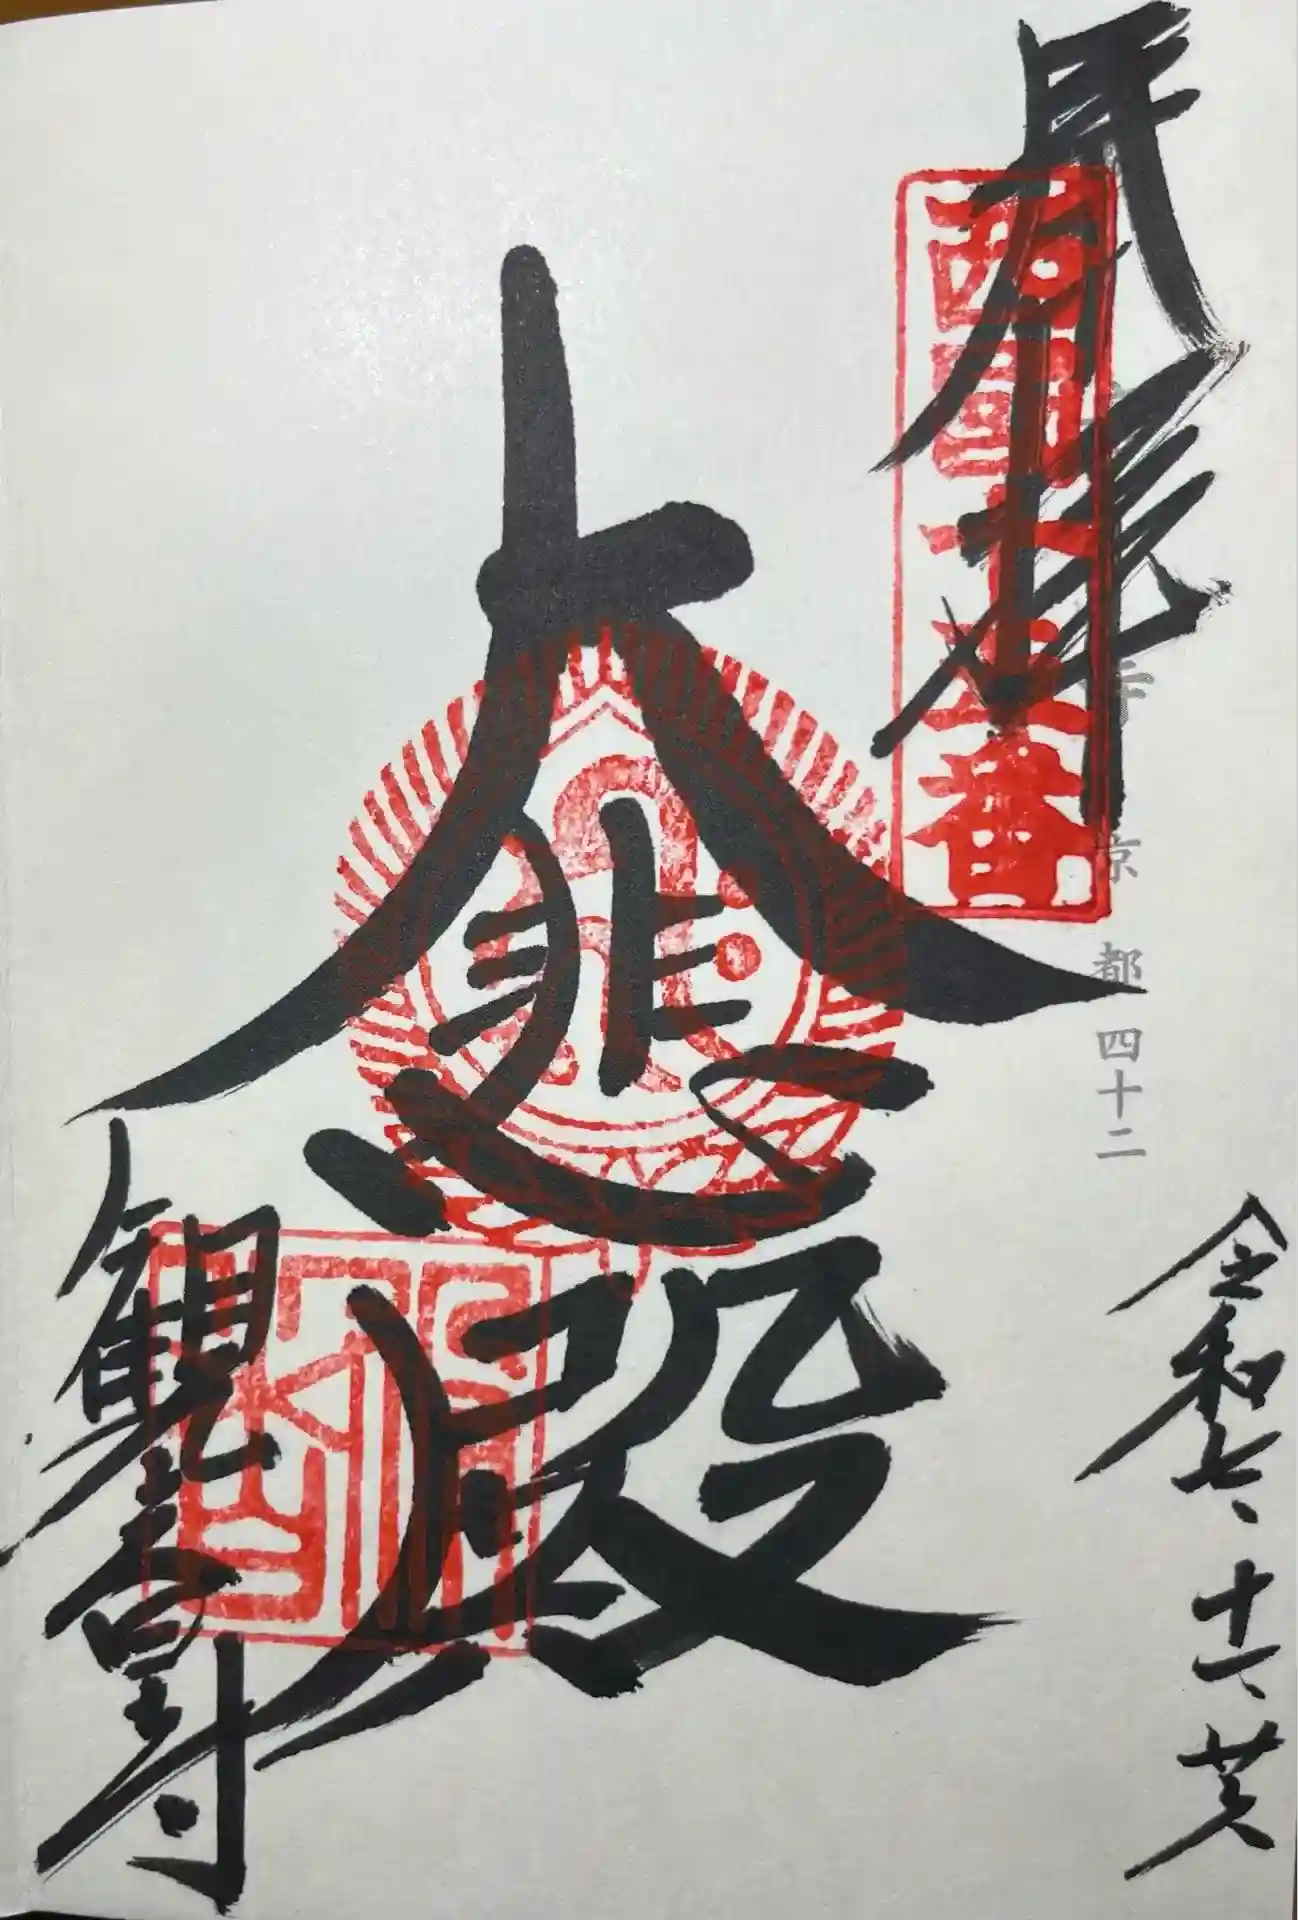 奉拝
西国十五番
寺 京都 四十二
大悲殿
観音寺
令和七、十一、廿六